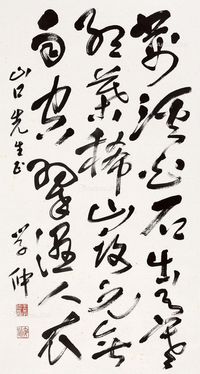 荆溪白石出天寒
红葉稀山路元無
雨空翠湿人衣
山口先生正
学仲